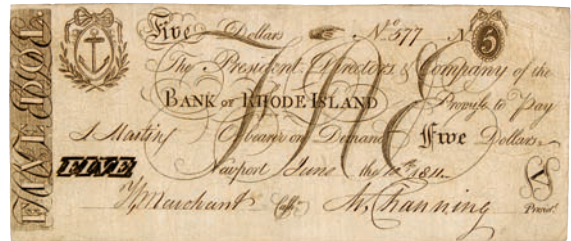 FIVE DOL.
Five Dollars No. 577 N 5
The President Directors & Company of the
BANK OF RHODE ISLAND Promise to Pay
S. Martin or bearer on Demand Five Dollars
FIVE Newport June the 10th 1811 V
Merchant Cash. Channing Presid.t
FIVE